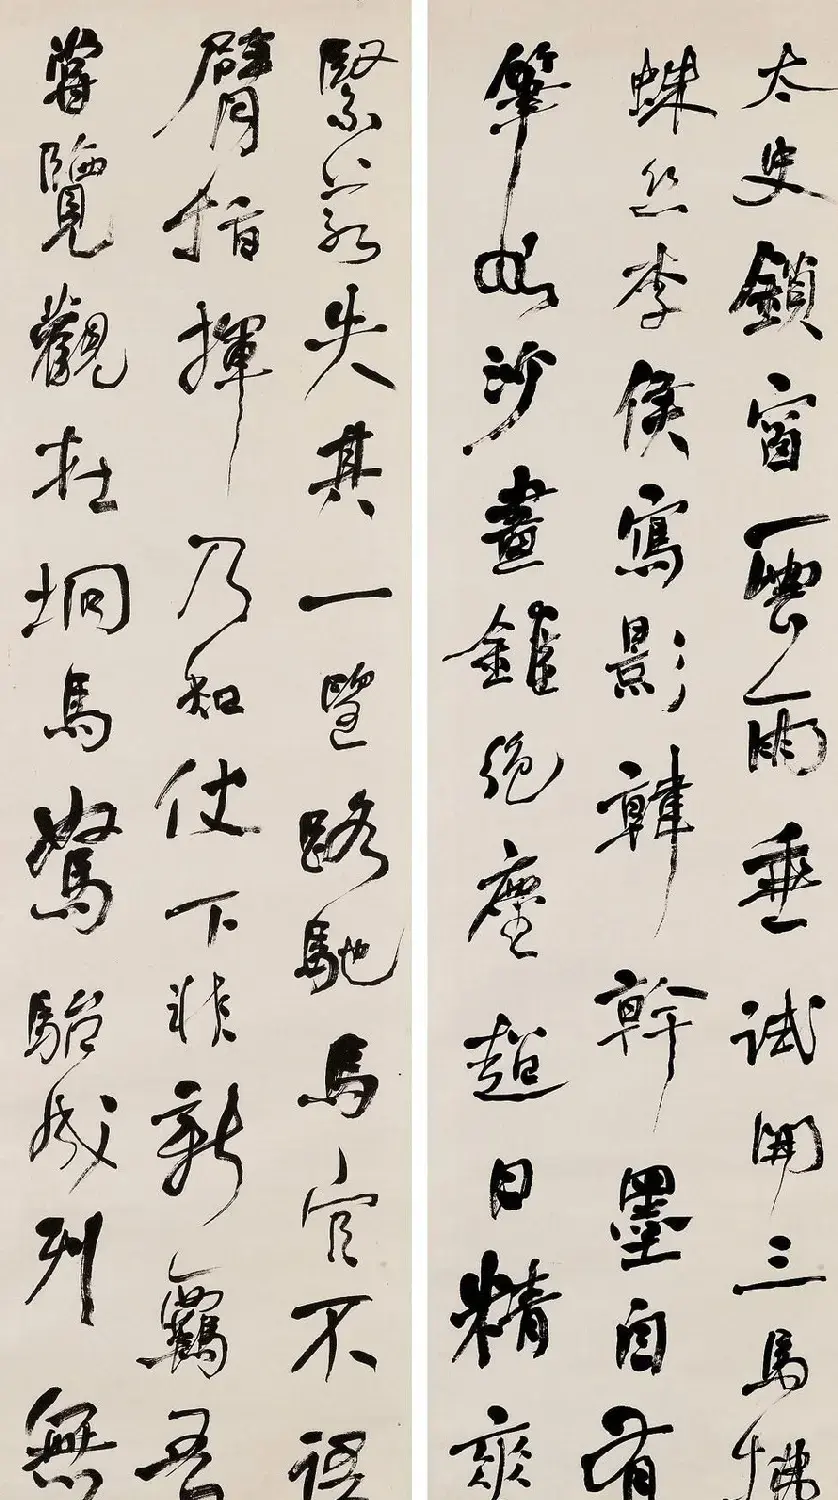 太史鎖窗雲雨垂試開三馬拂
蛛絲李侯寫影韓幹墨自有
筆如沙畫錐絕塵超日精爽
緊若失其一望路馳馬官不語
臂指揮乃知仗下非新羈吾
嘗覽觀在坰馬駑駘成列無